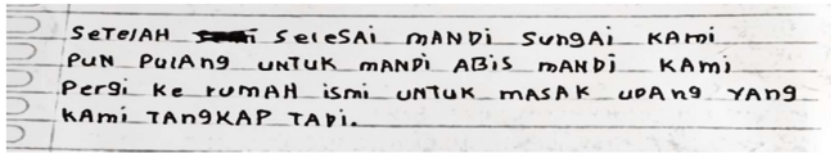 SeTelAH SeleSAi mANDi SungAi KAmi
PUN PULAng UNTUK mANDi ABiS mANDi KAmi
Pergi Ke rUmAH ismi UNTUK mASAK UDAng YAng
KAmi TAngKAP TADi.